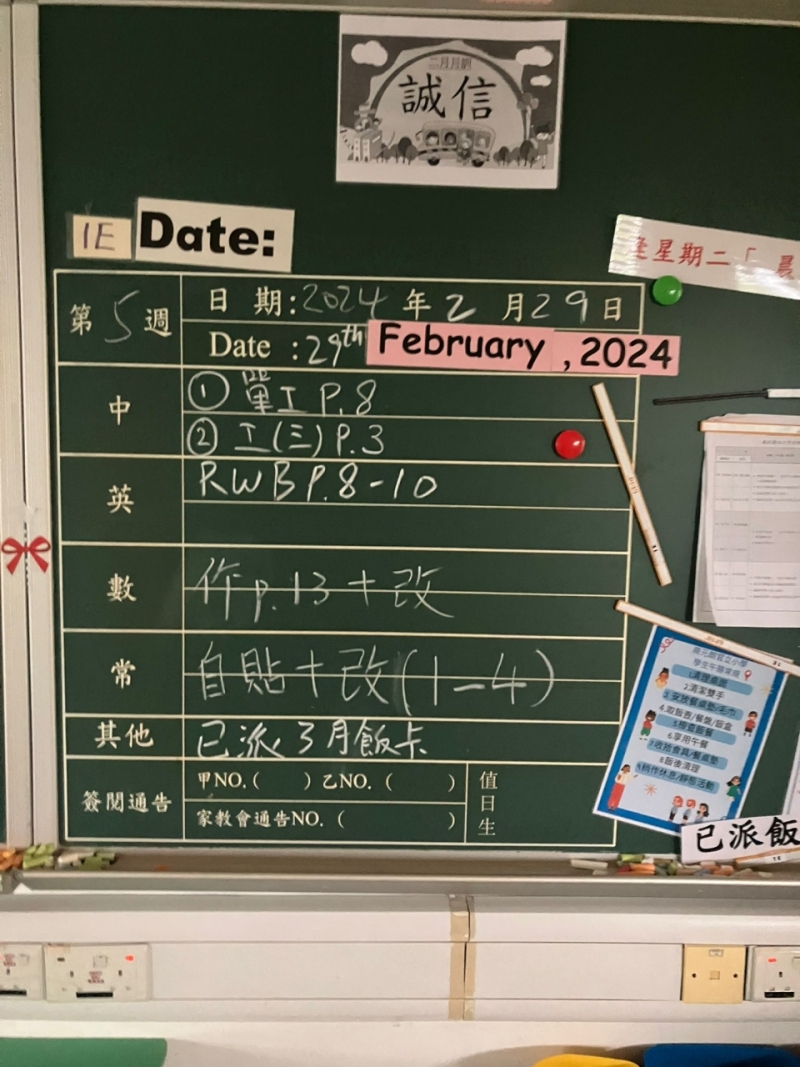 二月月訓
誠信
1E Date:
逢星期二「晨
第5週
日期:2024年2月29日
Date :29th February , 2024
中
① 單工 P.8
② 工(三) P.3
英
RWB P.8-10
數
作p.13+改
常
自貼+改(1-4)
其他
已派3月飯卡
簽閱通告
甲NO.( ) 乙NO. ( )
家教會通告NO. ( )
值日生
學生午膳常規
1.清理桌面
2.清潔雙手
3.安放餐桌墊/毛巾
4.取飯壺/餐盤/飯盒
6.享用午餐
7.收拾食具/餐桌墊
8.飯後清理
已派飯